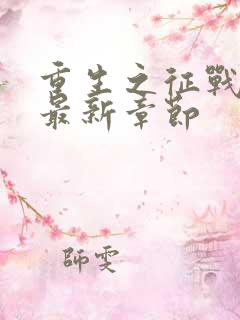 重生之征戰
最新章節
師雯